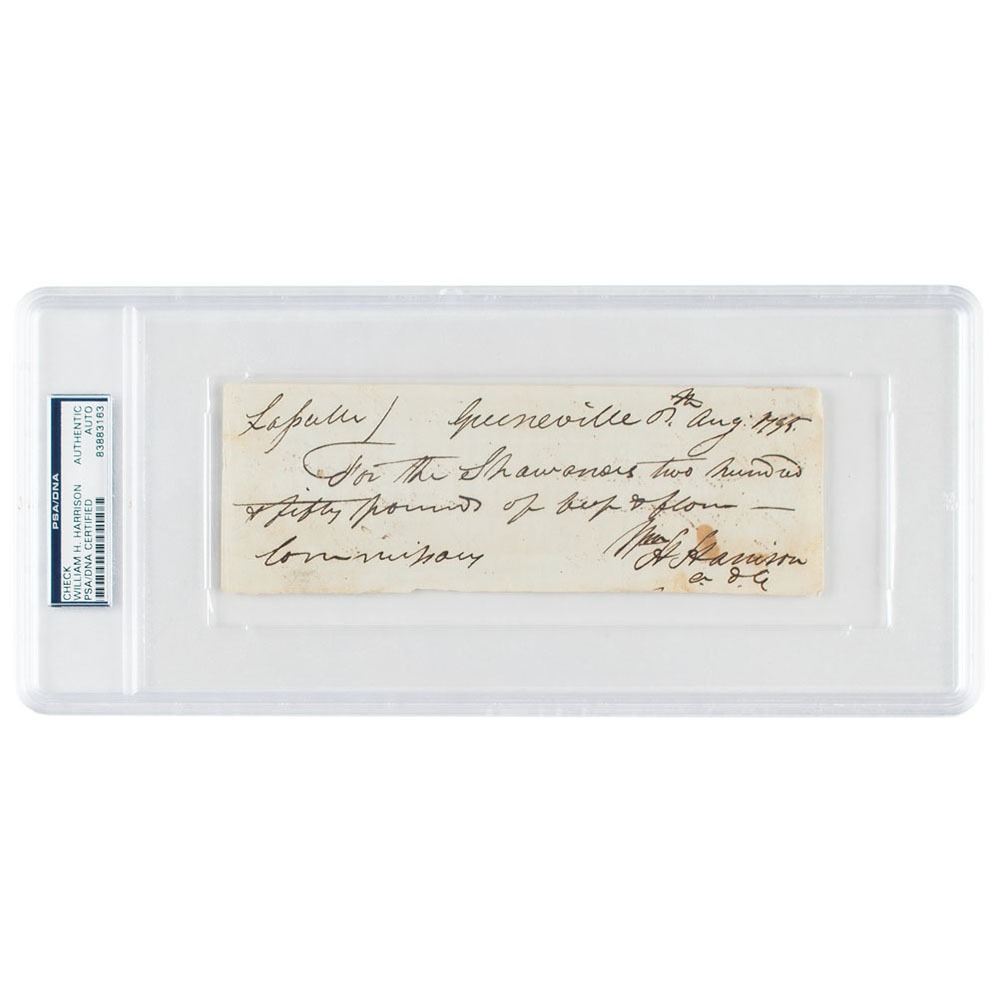 PSA/DNA
CHECK
WILLIAM H. HARRISON
PSA/DNA CERTIFIED
AUTHENTIC
AUTO
83883163
Greeneville 8th Aug. 1795
For the Shawanoes two hundred
& fifty pounds of beef & flour —
Commissary
Wm
H Harrison
a. d. C